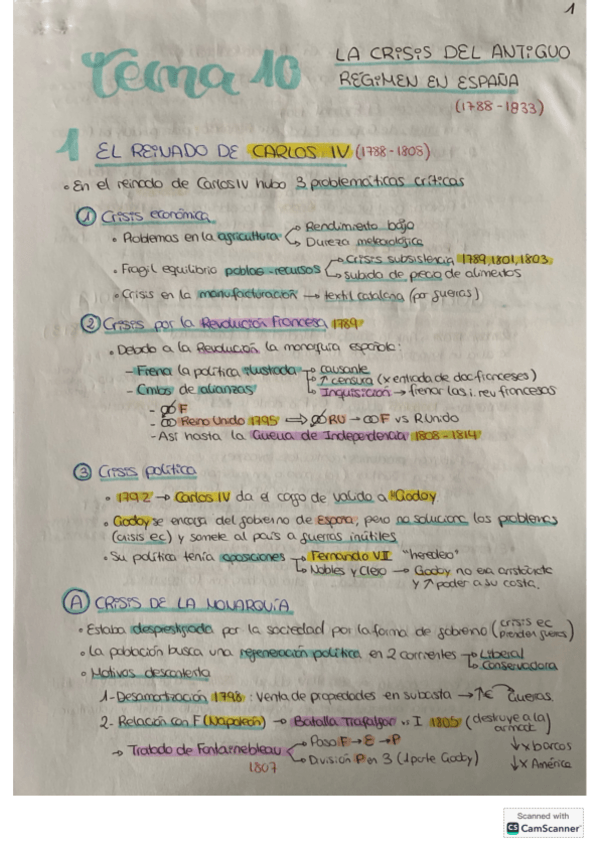 1
Tema 10
LA CRISIS DEL ANTIGUO
RÉGIMEN EN ESPAÑA
(1788-1833)
1 EL REINADO DE CARLOS IV (1788-1808)
• En el reinado de Carlos IV hubo 3 problemáticas críticas
① Crisis económica
• Problemas en la agricultura → Rendimiento bajo
→ Dureza meteorológica
• Fragil equilibrio poblac-recursos → Crisis subsistencia 1789, 1801, 1803
→ subida de precio de alimentos
• Crisis en la manufacturación → textil catalana (por guerras)
② Crisis por la Revolución Francesa 1789
• Debido a la Revolución la monarquía española:
- Frena la política ilustrada → causante
→ ↑ censura (x entrada de doc franceses)
- Cmbios de alianzas
→ Inquisición → frenar las i. rev francesas
- F
- Reino Unido 1795 ⇒ RU → F vs RUnido
- Así hasta la Guerra de Independencia 1808-1814
③ Crisis política
• 1792 → Carlos IV da el cargo de valido a Godoy
• Godoy se encarga del gobierno de España, pero no soluciona los problemas
(crisis ec) y somete al país a guerras inútiles
• Su política tenía oposiciones → Fernando VII "heredero"
→ Nobles y Clero → Godoy no era aristócrata
y ↑ poder a su costa.
Ⓐ CRISIS DE LA MONARQUÍA
• Estaba desprestigiada por la sociedad por la forma de gobierno (crisis ec
pierden guerras)
• La población busca una regeneración política en 2 corrientes → Liberal
→ Conservadora
• Motivos descontento
1- Desamortización 1798: Venta de propiedades en subasta → ↑€ Guerras.
2- Relación con F (Napoleón) → Batalla Trafalgar vs I 1805 (destruye a la
armada)
→ Tratado de Fontainebleau → Paso F → E → P
↓ x barcos
1807
→ División P en 3 (1 parte Godoy)
↓ x América
Scanned with
CS CamScanner